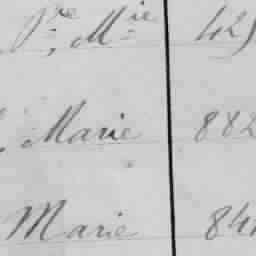 Pre Mie 425
Marie 882
Marie 84